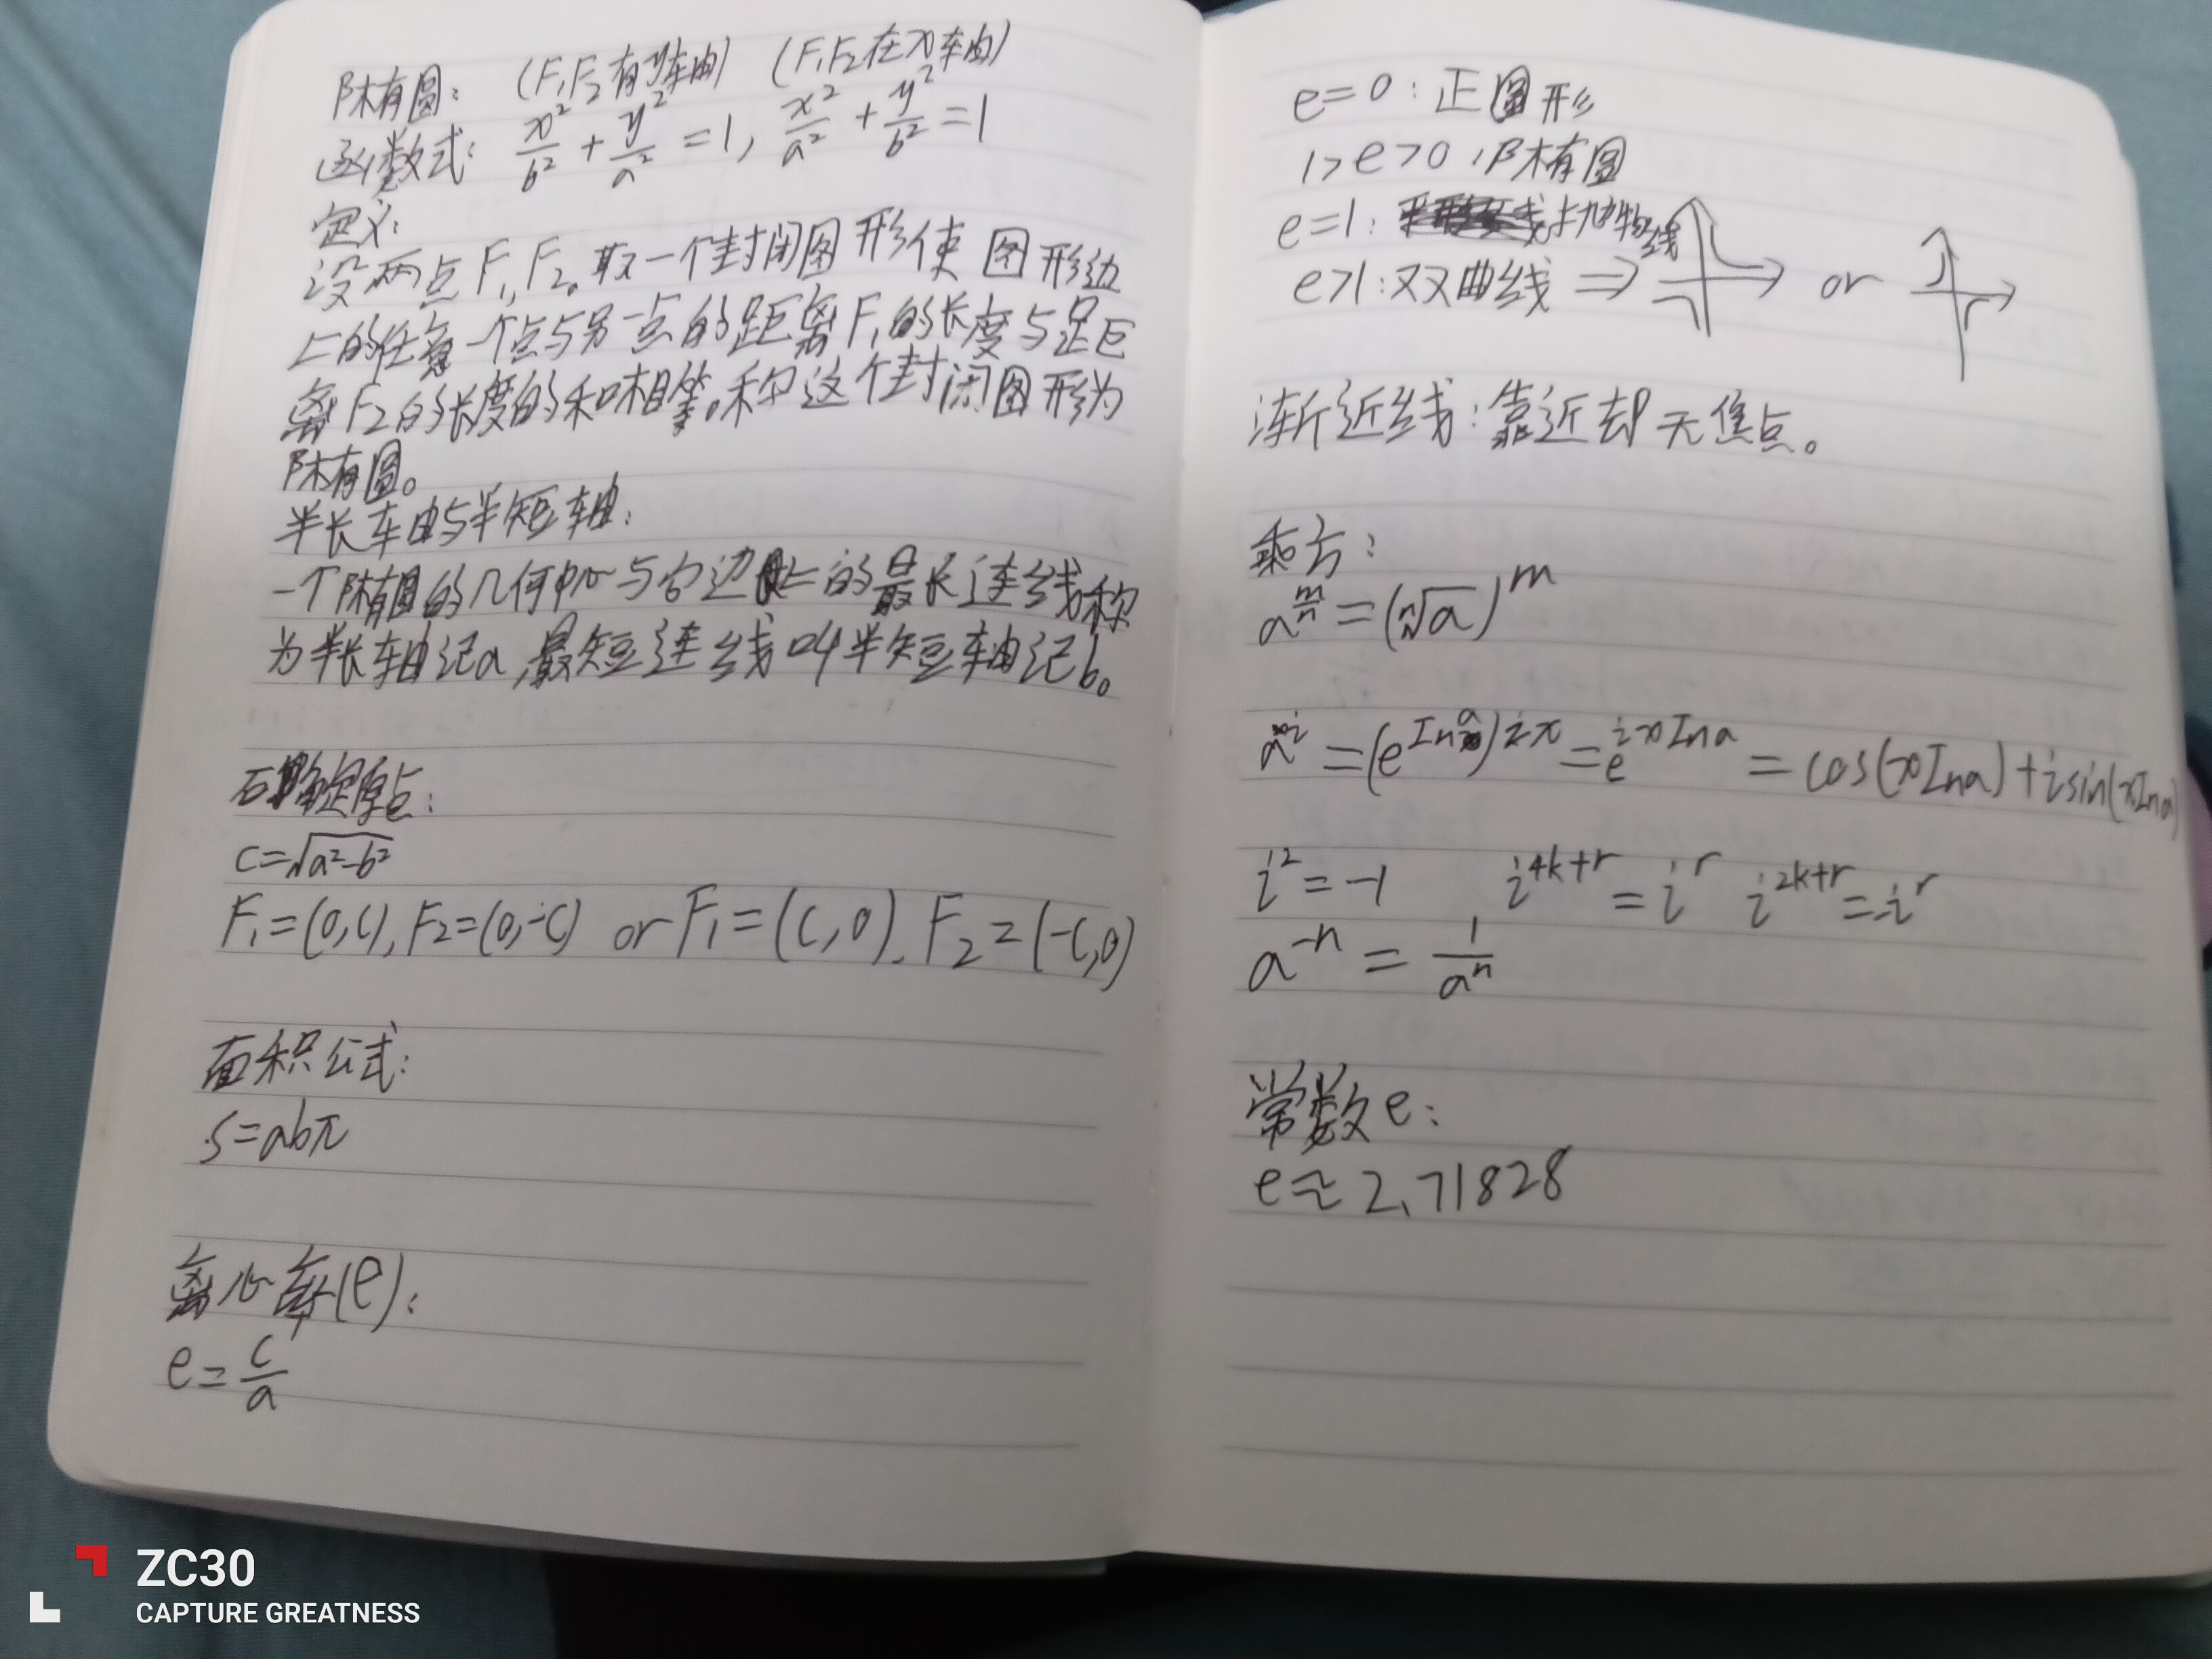 椭圆: (F₁F₂有y轴) (F₁F₂在x轴)
函数式: x²/b² + y²/a² = 1, x²/a² + y²/b² = 1
定义:
设两点F₁,F₂。取一个封闭图形使图形边
上的任意一个点与另一点的距离F₁的长度与距
离F₂的长度的和相等。称这个封闭图形为
椭圆。
半长轴与半短轴:
一个椭圆的几何中心与它边上的最长连线称
为半长轴记a,最短连线叫半短轴记b。
确定原点:
c=√a²-b²
F₁=(0,c), F₂=(0,-c) or F₁=(c,0). F₂=(-c,0)
面积公式:
S=abπ
离心率(e):
e=c/a
e=0:正圆形
1>e>0:椭圆
e=1: 抛物线
e>1:双曲线 ⇒ or
渐近线:靠近却无焦点。
乘方:
a^(m/n)=(ⁿ√a)^m
=(e^(Ina))^(ix)=e^(ixIna)=cos(xIna)+isin(xIna)
i²=-1 i^(4k+r)=i^r i^(2k+r)=-i^r
a^(-n)=1/a^n
常数e:
e≈2.71828
ZC30
CAPTURE GREATNESS